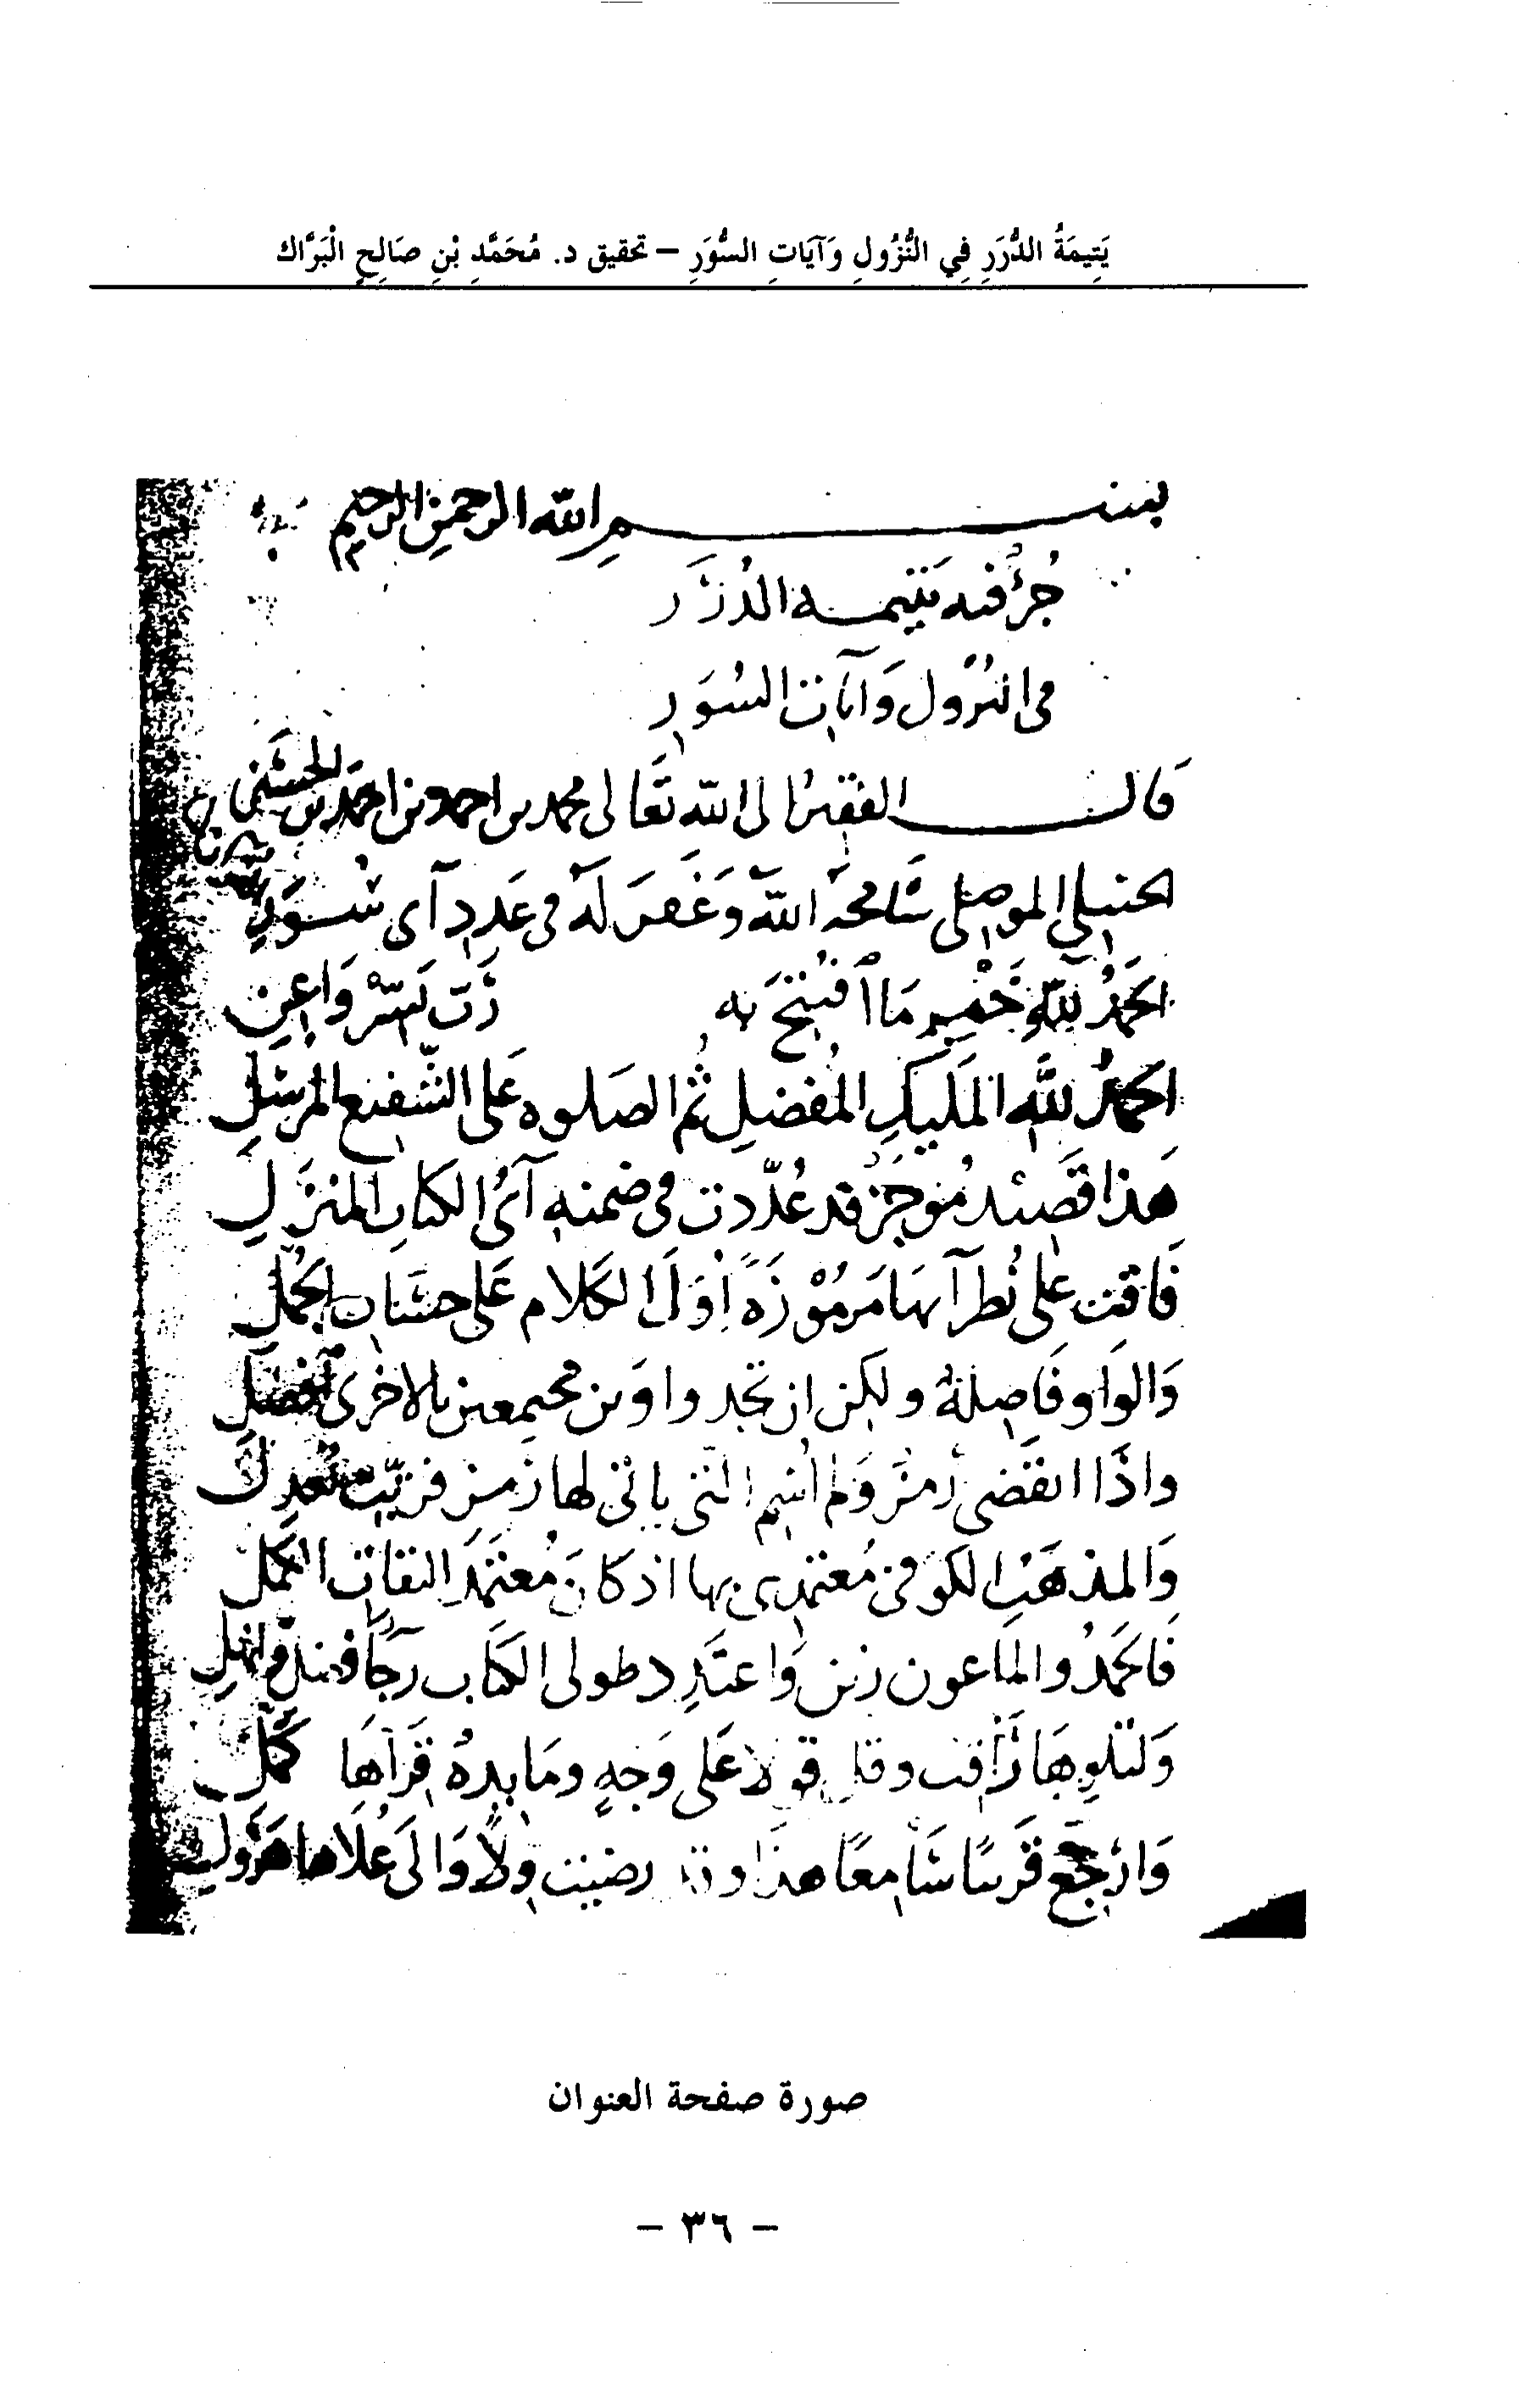 يَتِيمَةُ الدُّرَرِ فِي النُّزُولِ وَآيَاتِ السُّوَرِ – تحقيق د. مُحَمَّدِ بْنِ صَالِحٍ الْبَرَّاك
بسم الله الرحمن الرحيم
جُزْء فيه يتيمه الدُرَر
فى النزول وَآيات السُوَر
قال الفقير الى الله تعَالى محمد بن احمد بن احمَد بن
الحنبلى الموصلى سَامحَهُ اللهُ وَغَفَرَ لَهُ فى عَدَدِ آى سُوَرِ
الحَمدُ للهِ خَيْر مَا افتتحَ به رَبّ يَسّرْ وَاعِن
الحمدُ للهِ المَليكِ المُفضلِ ثُم الصَلوه عَلى الشّفيع المرسَلِ
هَذا قصَيدُ مُوجَزُ قد عُدّدت فى ضمنه آىُ الكتابِ المنزَلِ
فَاقت على نُظرآئها مَرمُوْزَةً اوَلَ الكلام عَلى حسَاب الجُمّل
وَالواو فَاصِلةُ ولكن ان تجد واوَين مجتمعين بالاخرى افصل
واذا انقضى رمزُ وَلم اسم التى ياتى لها رَمز فرتّب تعدِل
وَالمذهَبِ الكوفى مُعتمدى بها اذ كانَ مُعتمَدَ الثقات الكمل
فالحَمدُ والماعون زِن وَاعتَدِد طولى الكتاب
وَلتلوِهَا رَاقت وقل قولا عَلى وَجهٍ ومَا بِدهُ قرَاهَا كمّل
وَارْجع قَريبًا سَامعًا هذا رضيت وِلًا وَالى عُلَاها
صورة صفحة العنوان
– ٣٦ –